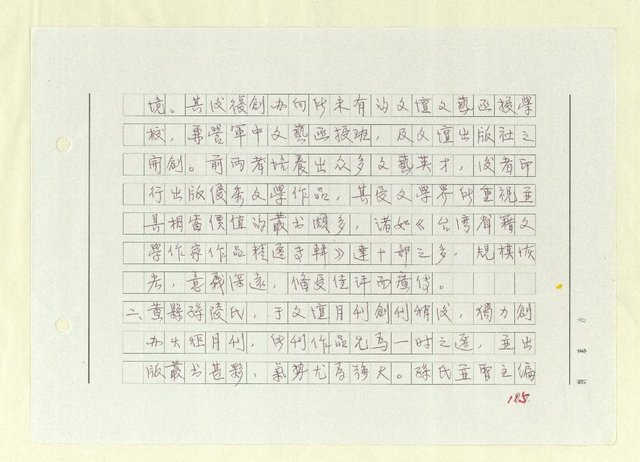 境。其後復創办向所未有的文壇文藝函授學
校，兼營軍中文藝函授班，及文壇出版社之
開創。前兩者培養出众多文藝英才，後者印
行出版優秀文學作品，其受文學界所重視並
具相當價值的叢书頗多，諸如《台湾省籍文
學作家作品精選專輯》達十部之多，規模恢
宏，意義深遠，備受佳评而廣传。
二、黄縣孫陵氏，于文壇月刊創刊稍後，獨力創
办火炬月刊，所刊作品尤為一时之選，並出
版叢书甚夥，氣勢尤為強大。孫氏並曾主編
185